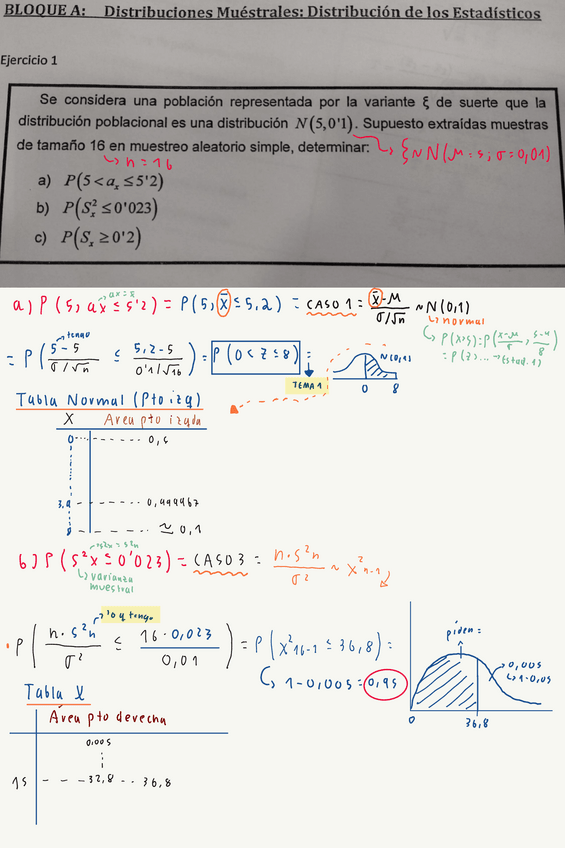 BLOQUE A: Distribuciones Muéstrales: Distribución de los Estadísticos
Ejercicio 1
Se considera una población representada por la variante ξ de suerte que la
distribución poblacional es una distribución N(5,0'1). Supuesto extraídas muestras
de tamaño 16 en muestreo aleatorio simple, determinar:
↳ ξ ~ N(μ=5; σ=0,01)
↳ n=16
a) P(5 < aₓ ≤ 5'2)
b) P(Sₓ² ≤ 0'023)
c) P(Sₓ ≥ 0'2)
→ ax = x̄
a) P(5, ax ≤ 5'2) = P(5, x̄ ≤ 5,2) = CASO 1 = x̄-μ / σ/√n ~ N(0,1)
↳ normal
→ tengo
= P( 5-5 / σ/√n ≤ 5,2-5 / 0'1/√16 ) = P(0 < z ≤ 8) =
TEMA 1
N(0,1)
0 8
Tabla Normal (Pto izq)
X Area pto izqda
0 ---- 0,5
---- 0,499967
≃ 0,1
b) P(S²x ≤ 0'023) = CASO 3 = n·s²n / σ² ~ X²n-1
↳ varianza
muestral
→ lo q tengo
P( n·s²n / σ² ≤ 16·0,023 / 0,01 ) = P(X²16-1 ≤ 36,8) =
↳ 1-0,005 = 0,95
piden =
0,005
↳ 1-0,05
0 36,8
Tabla X
Área pto derecha
0,005
15 - - - 32,8 - - 36,8